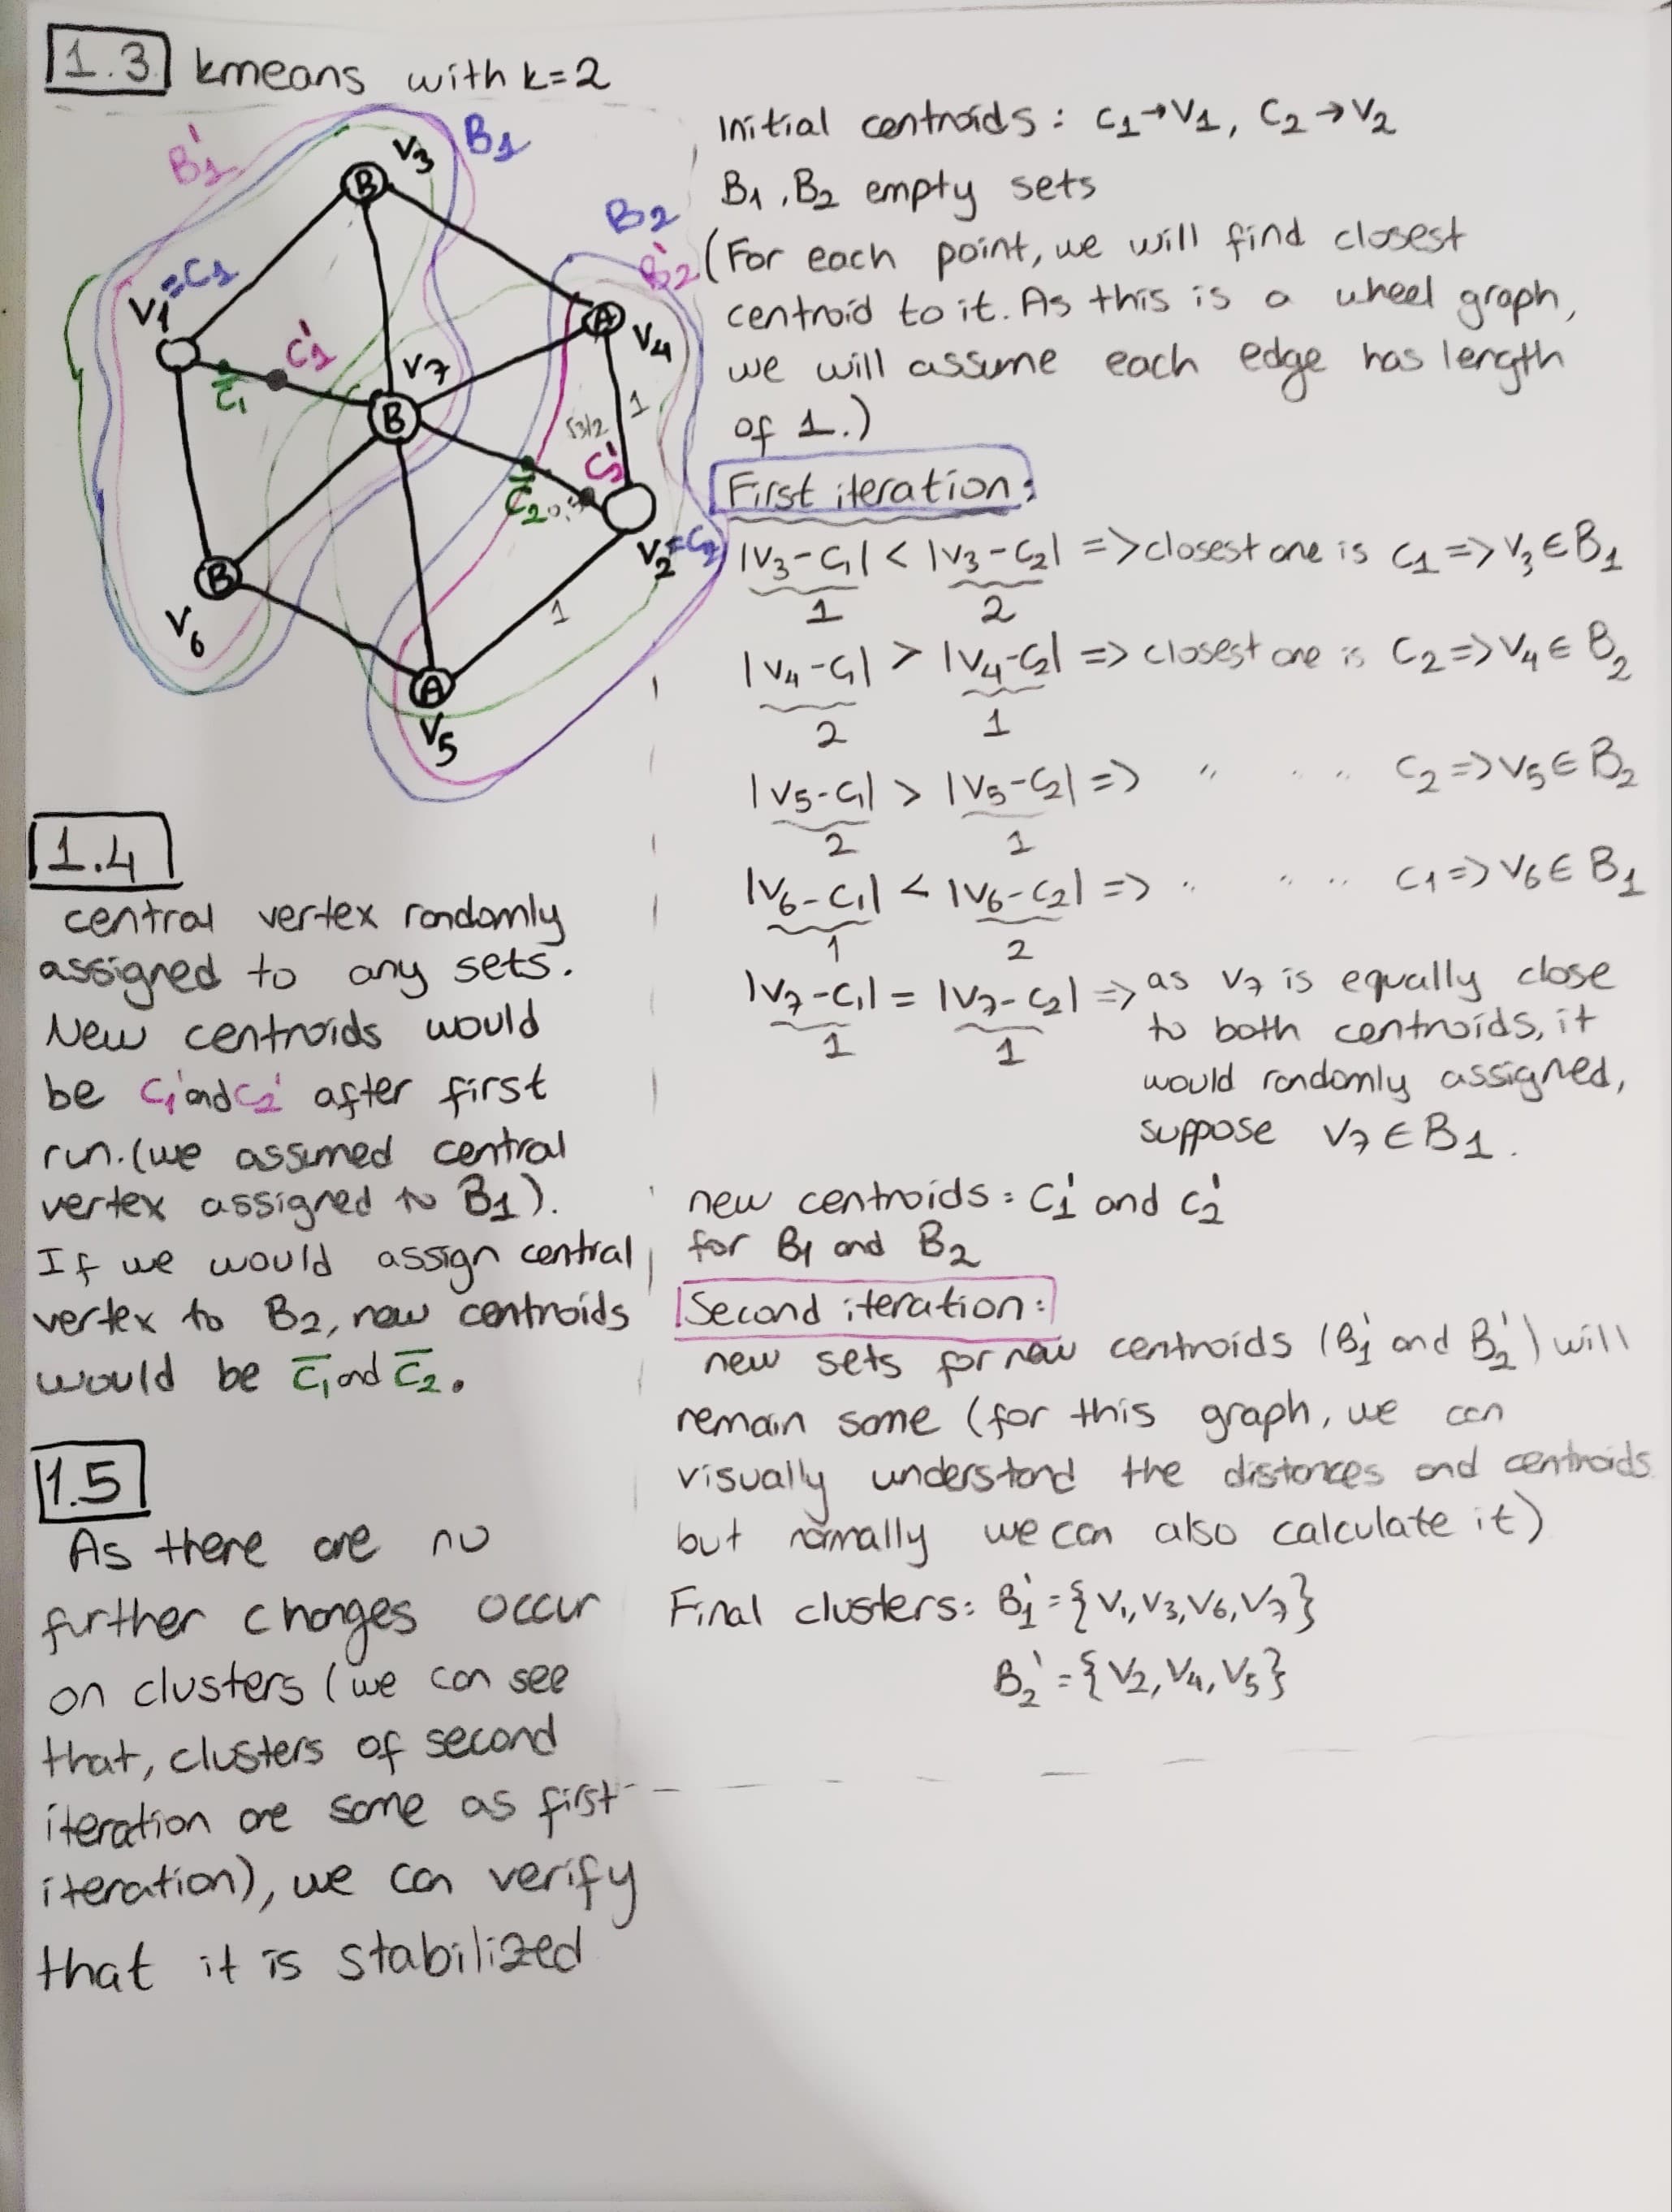 1.3 kmeans with k=2
B₁' V₃ B₁
B
B₂
B₂'
V₁=C₁
C₁'
C̅₁
V₇
B
A
V₄
1
√3/2
C₂'
C̅₂
V₂=C₂
B
V₆
1
A
V₅
Initial centroids: C₁→V₁, C₂→V₂
B₁, B₂ empty sets
(For each point, we will find closest
centroid to it. As this is a wheel graph,
we will assume each edge has length
of 1.)
First iteration:
|V₃-C₁| < |V₃-C₂| => closest one is C₁ => V₃ ∈ B₁
1 2
|V₄-C₁| > |V₄-C₂| => closest one is C₂ => V₄ ∈ B₂
2 1
|V₅-C₁| > |V₅-C₂| => " " " C₂ => V₅ ∈ B₂
2 1
|V₆-C₁| < |V₆-C₂| => " " " C₁ => V₆ ∈ B₁
1 2
|V₇-C₁| = |V₇-C₂| => as V₇ is equally close
1 1
to both centroids, it
would randomly assigned,
suppose V₇ ∈ B₁.
new centroids: C₁' and C₂'
for B₁ and B₂
Second iteration:
new sets for new centroids (B₁' and B₂') will
remain same (for this graph, we can
visually understand the distances and centroids
but normally we can also calculate it)
Final clusters: B₁' = {V₁, V₃, V₆, V₇}
B₂' = {V₂, V₄, V₅}
1.4
central vertex randomly
assigned to any sets.
New centroids would
be C₁' and C₂' after first
run. (we assumed central
vertex assigned to B₁).
If we would assign central
vertex to B₂, new centroids
would be C̅₁ and C̅₂.
1.5
As there are no
further changes occur
on clusters (we can see
that, clusters of second
iteration are same as first
iteration), we can verify
that it is stabilized